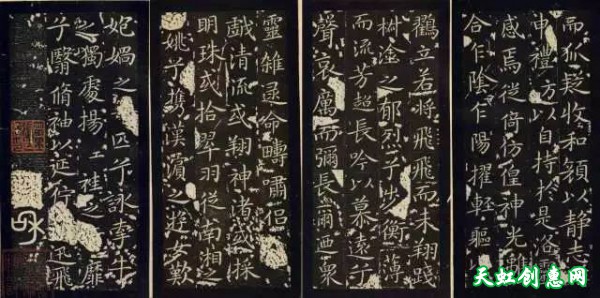 而狐疑收和顏以静志
申禮防以自持於是洛
感焉徙倚彷徨神光離
合乍陰乍陽擢輕軀以
鶴立若將飛飛而未翔踐
椒塗之郁烈兮步衡薄
而流芳超長吟以慕遠兮
聲哀厲而彌長爾迺眾
靈雜遝命疇嘯侶
戲清流或翔神渚或採
明珠或拾翠羽從南湘之
姚兮携漢濱之遊女歎
妃媧之匹兮詠牽牛
之獨處揚袿之靡
兮翳脩袖以延佇迅飛
天虹创意网